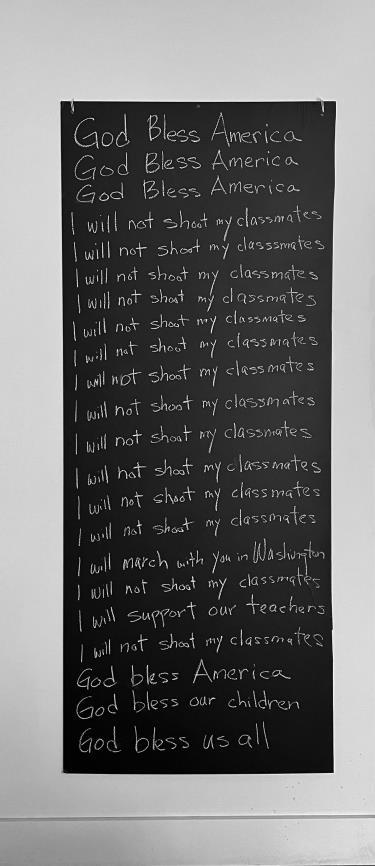 God Bless America
God Bless America
God Bless America
I will not shoot my classmates
I will not shoot my classsmates
I will not shoot my classmates
I will not shoot my classmates
I will not shoot my classmates
I will not shoot my classmates
I will not shoot my classmates
I will not shoot my classmates
I will not shoot my classmates
I will not shoot my classmates
I will not shoot my classmates
I will not shoot my classmates
I will march with you in Washington
I will not shoot my classmates
I will support our teachers
I will not shoot my classmates
God bless America
God bless our children
God bless us all